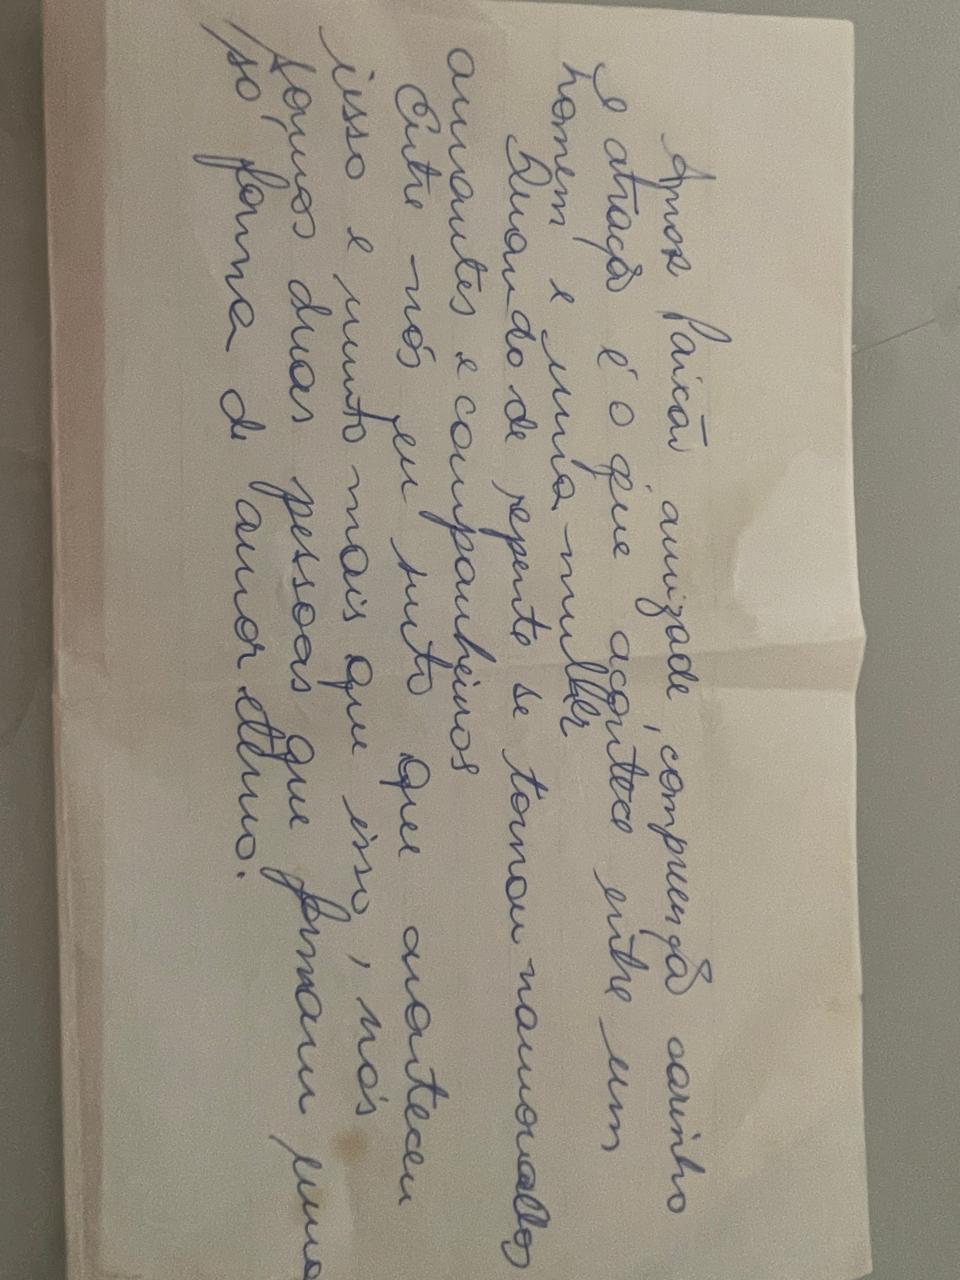 Amor Paixão amizade, compreenção carinho
e atração é o que acontece entre um
homem e uma mulher
Quando de repente se tornam namorados
amantes e companheiros
Entre nós eu sinto que aconteceu
isso e muito mais que isso, nós
somos duas pessoas que formam uma
só forma de amor eterno.